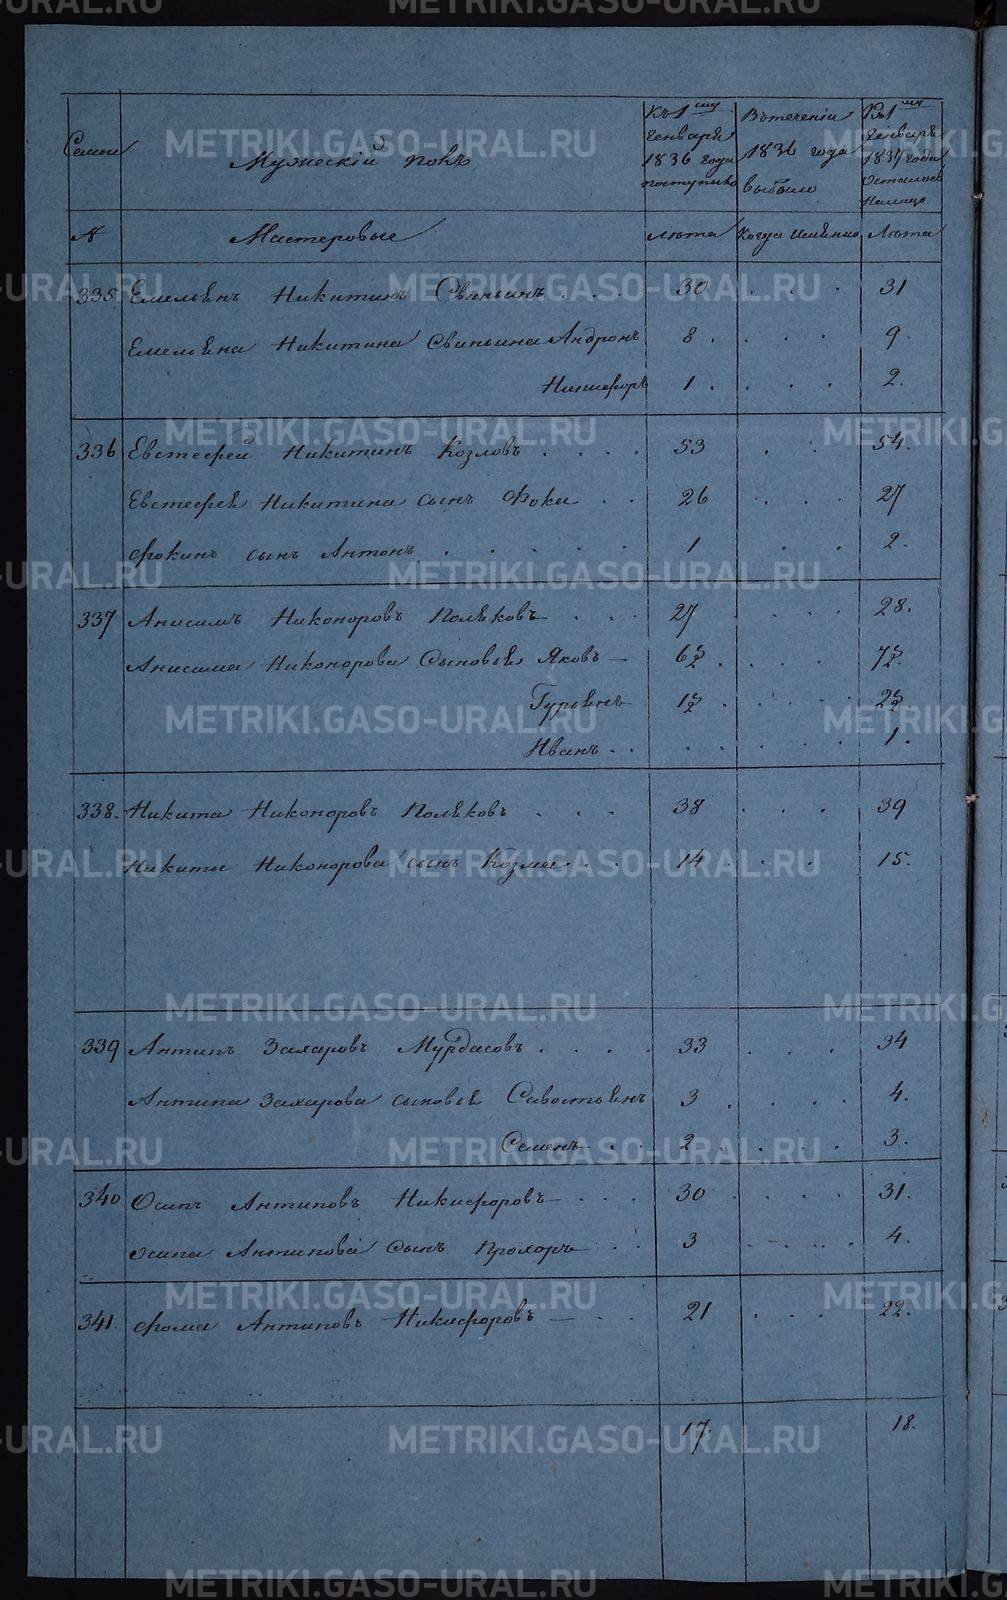 Семьи
Мужескій полъ
Къ 1му Генваря 1836 года поступило
Въ теченіи 1836 года выбыло
Къ 1му Генваря 1837 года Осталось Налицо
№ Мастеровые Лѣта Когда Имѣнно Лѣта
335 Емельянъ Никитинъ Свиньинъ . . . 30 . . . 31
Емельяна Никитина Свиньина Андронъ 8 . . . . 9.
Никифоръ 1 . . . . 2.
336 Евстефей Никитинъ Козловъ . . . . 53 . . 54.
Евстефея Никитина сынъ Фока . . 26 . . . 27
Фокинъ сынъ Антонъ . . . . . 1 . . 2.
337 Анисимъ Никоноровъ Поляковъ . . . 27 . . . 28.
Анисима Никонорова Сыновья Яковъ — 6½ . . . . 7½.
Гурьянъ 1½ . . . . 2½.
Иванъ . . . . . . . 1.
338. Никита Никоноровъ Поляковъ . . . 38 . . . 39
Никиты Никонорова сынъ Козма . . . 14 . . . 15.
339 Антипъ Захаровъ Мурдасовъ . . . . 33 . . . 34
Антипа Захарова сыновья Савостьянъ 3 . . . . 4.
Семенъ . . 2 . . . . 3.
340 Осипъ Антиповъ Никифоровъ — . . . 30 . . . . 31.
Осипа Антипова Сынъ Прохоръ . . 3 . . . . 4.
341. Фома Антиповъ Никифоровъ — . . 21 . . . 22.
17. 18.
METRIKI.GASO-URAL.RU